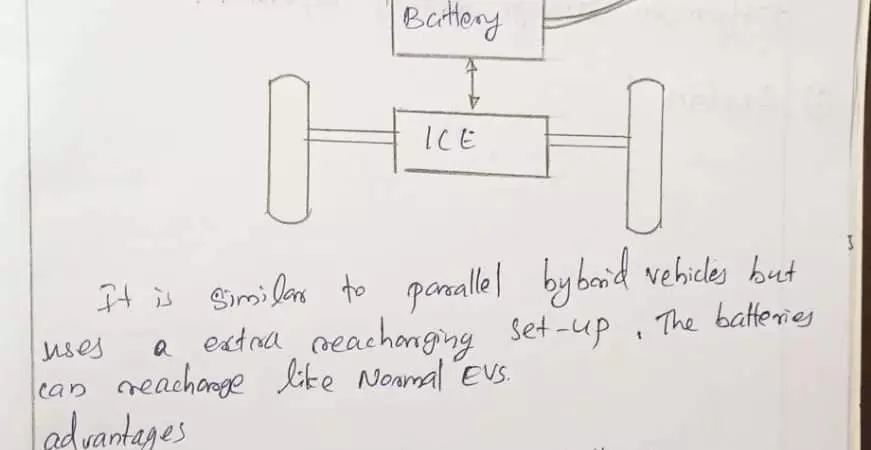 Battery
ICE
It is similar to parallel hybrid vehicles but
uses a extra reacharging set-up. The batteries
can reacharge like Normal EVs.
advantages